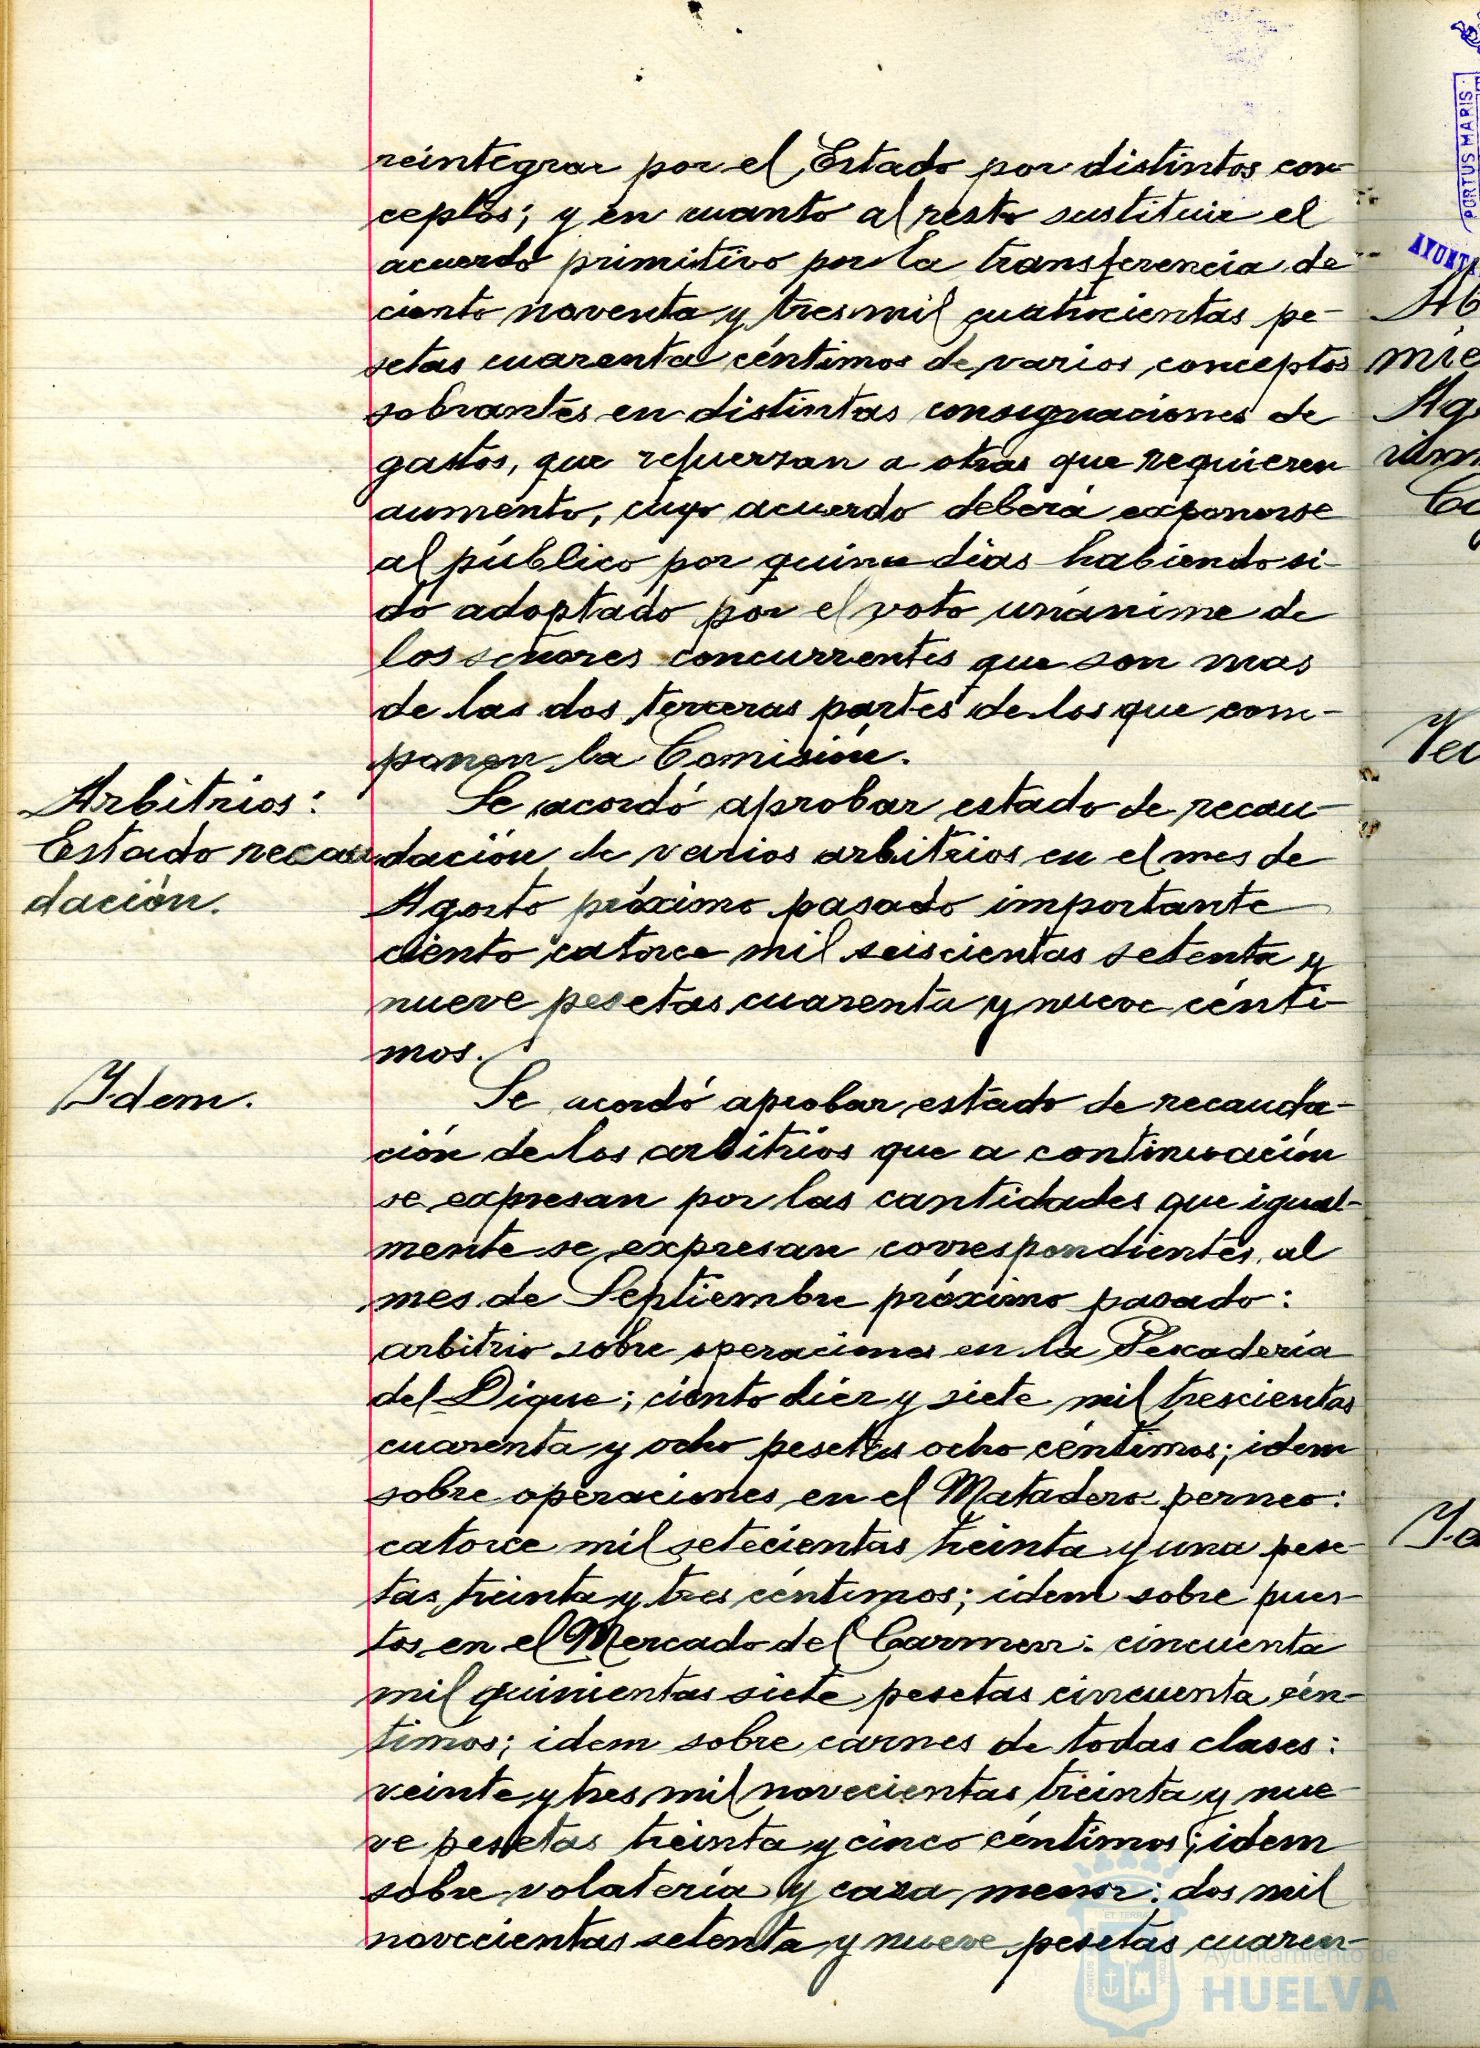 reintegrar por el Estado por distintos con-
ceptos; y en cuanto al resto sustituir el
acuerdo primitivo por la transferencia de
ciento noventa y tres mil cuatrocientas pe-
setas cuarenta céntimos de varios conceptos
sobrantes en distintas consignaciones de
gastos, que refuerzan a otras que requieren
aumento, cuyo acuerdo deberá exponerse
al público por quince dias habiendo si-
do adoptado por el voto unánime de
los señores concurrentes que son mas
de las dos terceras partes de los que com-
ponen la Comisión.
Arbitrios:
Estado recau
dación.
Se acordó aprobar estado de recau-
dación de varios arbitrios en el mes de
Agosto próximo pasado importante
ciento catorce mil seiscientas setenta y
nueve pesetas cuarenta y nueve cénti-
mos.
Idem.
Se acordó aprobar estado de recauda-
ción de los arbitrios que a continuación
se expresan por las cantidades que igual-
mente se expresan correspondientes al
mes de Septiembre próximo pasado:
arbitrio sobre operaciones en la Pescadería
del Dique; ciento diez y siete mil trescientas
cuarenta y ocho pesetas ocho céntimos; idem
sobre operaciones en el Matadero perneo:
catorce mil setecientas treinta y una pese-
tas treinta y tres céntimos; idem sobre pues-
tos en el Mercado del Carmen: cincuenta
mil quinientas siete pesetas cincuenta cén-
timos; idem sobre carnes de todas clases:
veinte y tres mil novecientas treinta y nue-
ve pesetas treinta y cinco céntimos; idem
sobre volatería y caza menor: dos mil
novecientas setenta y nueve pesetas cuaren-
PORTUS MARIS
AYUNTA
Ab
mie
Ag
Ayuntamiento de
HUELVA